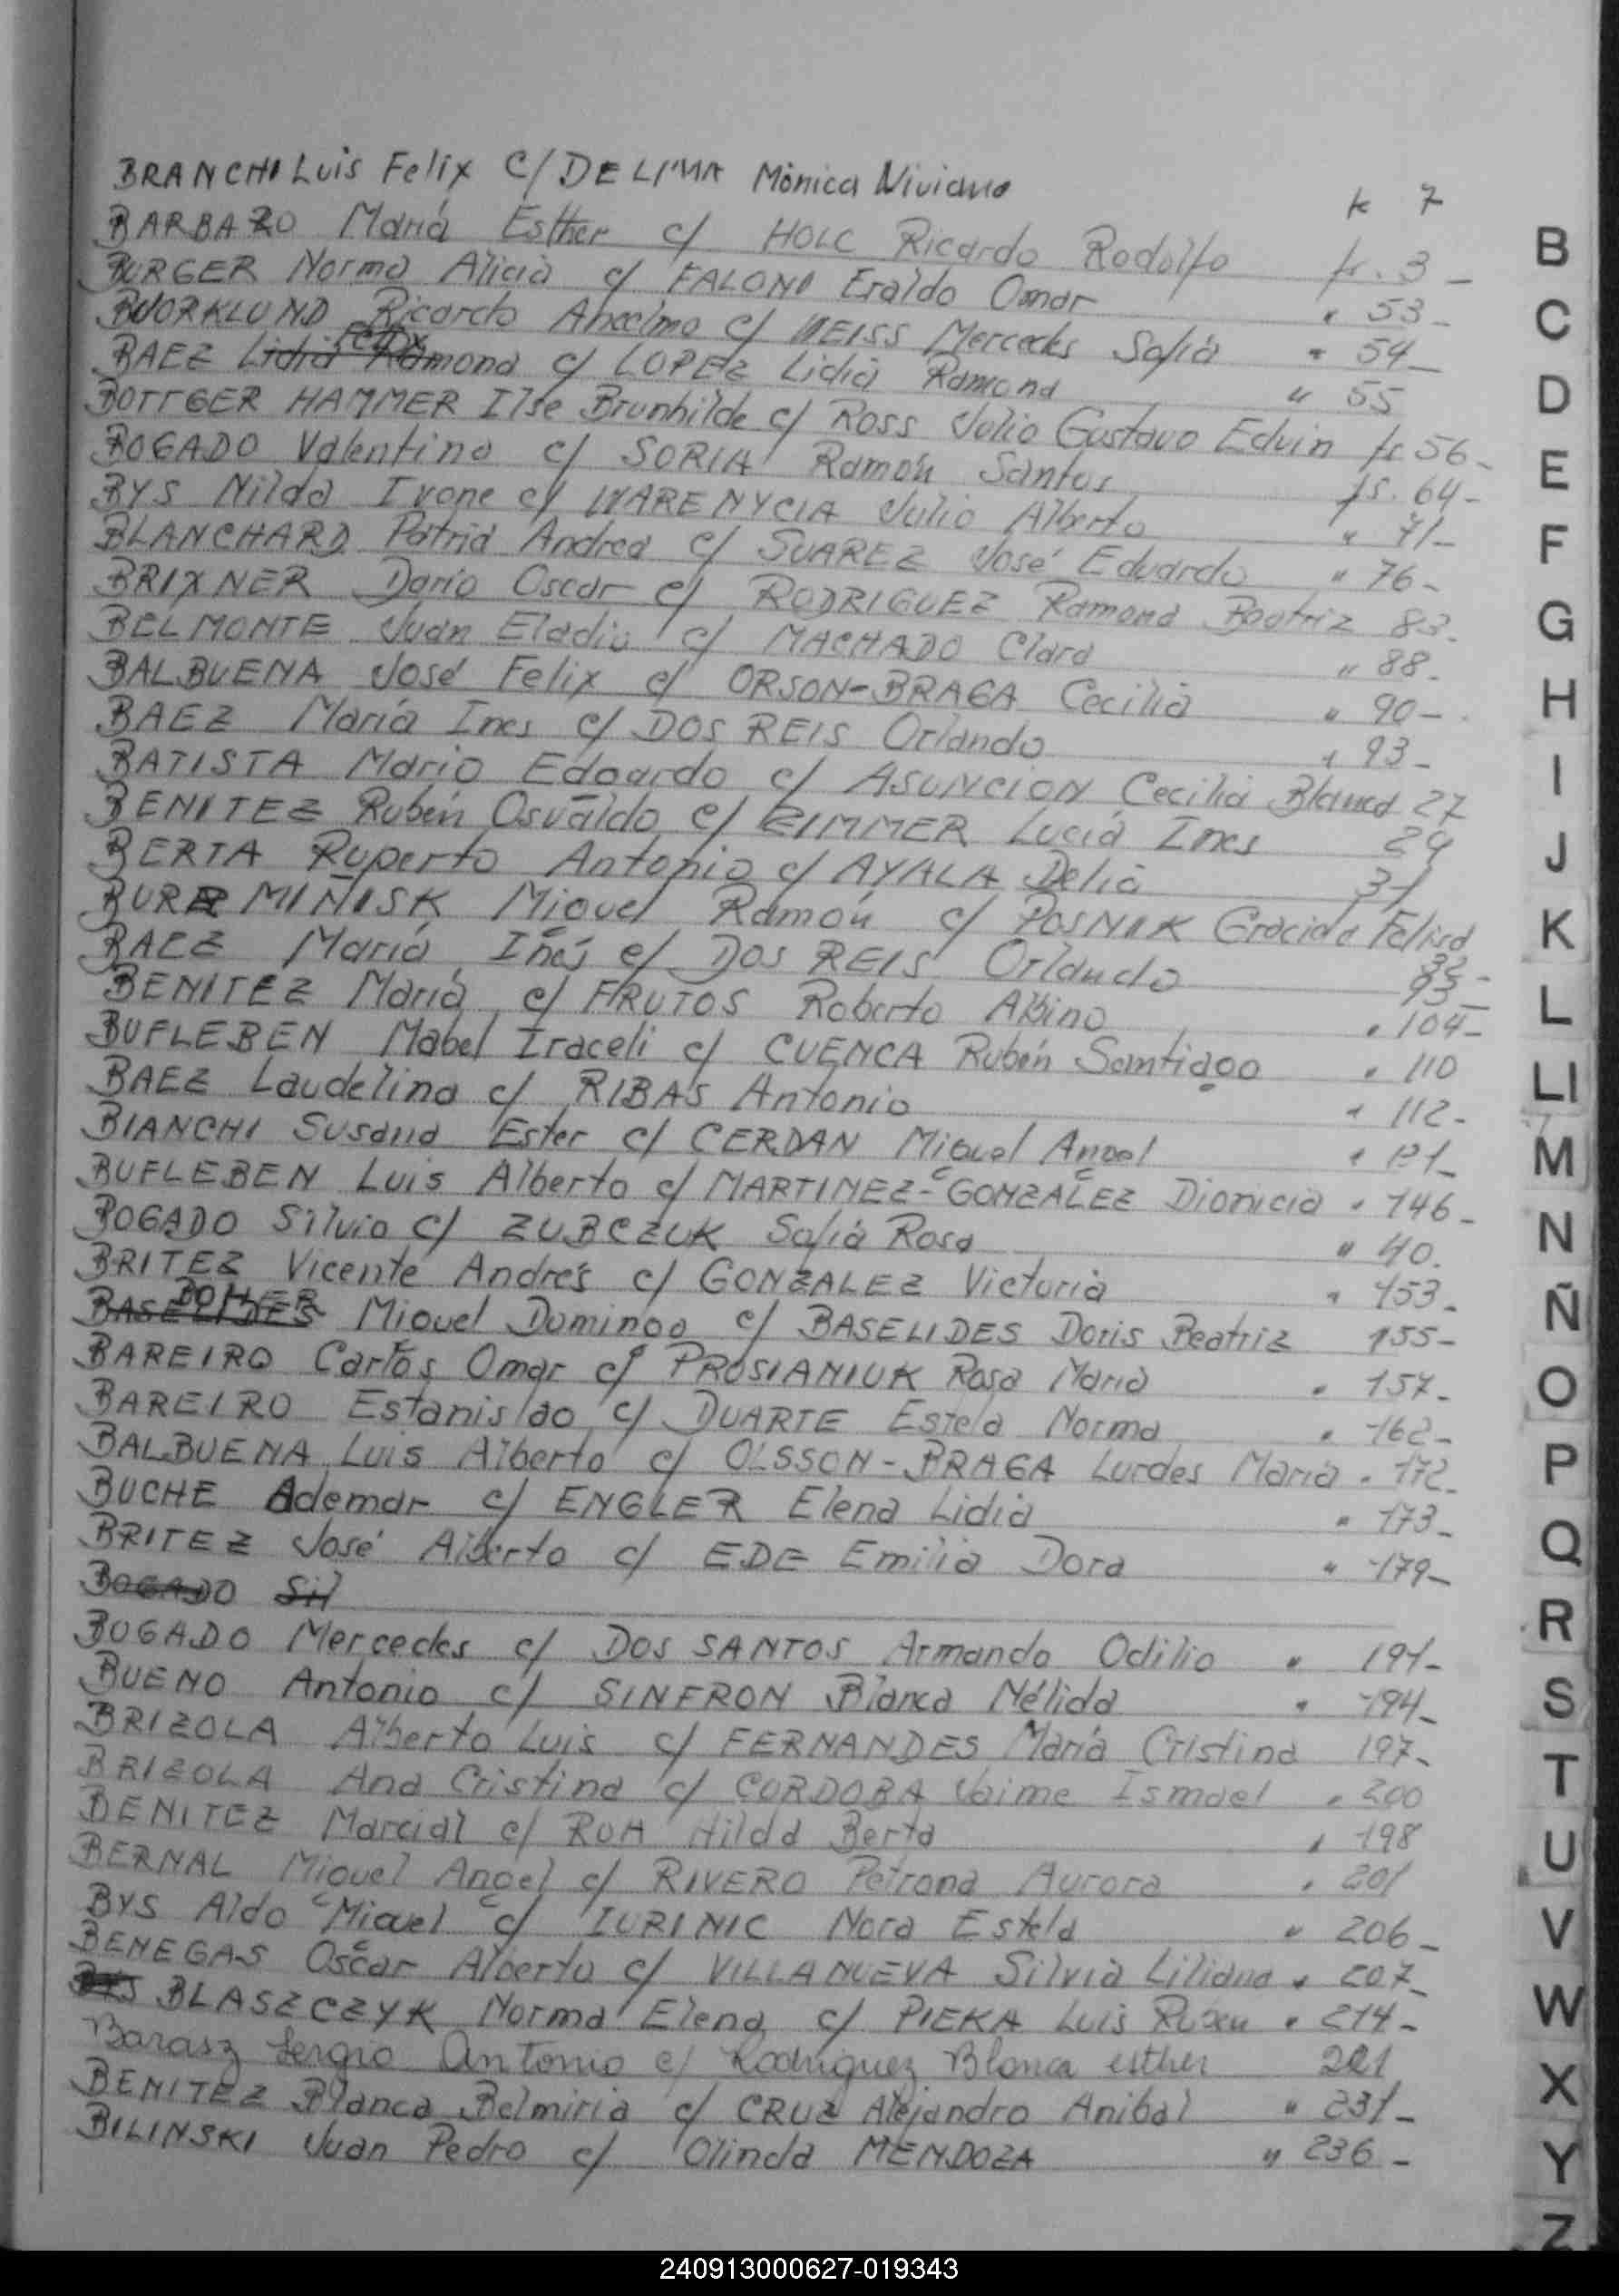 BRANCHI Luis Felix C/ DE LIMA Mónica Niviana k 7
BARBARO María Esther c/ HOLC Ricardo Rodolfo fs. 3 -
BURGER Norma Alicia c/ FALONI Eraldo Omar " 53 -
BUORKLUND Ricardo Ancelmo c/ WEISS Mercedes Sofia " 54 -
BAEZ Lidia Ramona Felix c/ LOPEZ Lidia Ramona " 55
BOTTGER HAMMER Ilse Brunhilde c/ ROSS Julio Gustavo Edvin fs 56 -
BOGADO Valentina c/ SORIA Ramón Santos fs. 64 -
BYS Nilda Ivone c/ WARENYCIA Julio Alberto " 71 -
BLANCHARD Patrid Andrea c/ SUAREZ José Eduardo " 76 -
BRIXNER Dario Oscar c/ RODRIGUEZ Ramona Beatriz 83 -
BELMONTE Juan Eladio c/ MACHADO Clara " 88 -
BALBUENA José Felix c/ ORSON-BRAGA Cecilia " 90 -
BAEZ María Ines c/ DOS REIS Orlando " 93 -
BATISTA Mario Edgardo c/ ASUNCION Cecilia Blanca 27
BENITEZ Rubén Osvaldo c/ ZIMMER Lucia Ines 29
BERTA Ruperto Antonio c/ AYALA Delia 31
BURMINISK Miguel Ramón c/ POSNIK Graciela Felisa 32 -
BAEZ María Inés c/ DOS REIS Orlando 93 -
BENITEZ María c/ FRUTOS Roberto Albino " 104 -
BUFLEBEN Mabel Iraceli c/ CUENCA Rubén Santiago " 110
BAEZ Laudelina c/ RIBAS Antonio " 112 -
BIANCHI Susana Ester c/ CERDAN Miguel Angel " 121 -
BUFLEBEN Luis Alberto c/ MARTINEZ-GONZALEZ Dionicia " 146 -
BOGADO Silvio c/ ZUBCZUK Sofia Rosa " 40.
BRITEZ Vicente Andrés c/ GONZALEZ Victoria " 153 -
BASELIDES BOHER Miguel Domingo c/ BASELIDES Doris Beatriz 155 -
BAREIRO Carlos Omar c/ PROSIANIUK Rosa Maria " 157 -
BAREIRO Estanislao c/ DUARTE Estela Norma " 162 -
BALBUENA Luis Alberto c/ OLSSON-BRAGA Lurdes María " 172 -
BUCHE Ademar c/ ENGLER Elena Lidia " 173 -
BRITEZ José Alberto c/ EDE Emilia Dora " 179 -
BOGADO Sil
BOGADO Mercedes c/ DOS SANTOS Armando Odilio " 191 -
BUENO Antonio c/ SINFRON Blanca Nélida " 194 -
BRIZOLA Alberto Luis c/ FERNANDES María Cristina 197 -
BRIZOLA Ana Cristina c/ CORDOBA Jaime Ismael " 200
BENITEZ Marcial c/ ROA Hilda Berta " 198
BERNAL Miguel Angel c/ RIVERO Petrona Aurora " 201
BYS Aldo Miguel c/ IURINIC Nora Estela " 206 -
BENEGAS Oscar Alberto c/ VILLANUEVA Silvia Liliana " 207 -
BYS BLASZCZYK Norma Elena c/ PIEKA Luis Ruben " 214 -
Barasz Sergio Antonio c/ Rodriguez Blanca esther 221
BENITEZ Blanca Belmiria c/ CRUZ Alejandro Anibal " 231 -
BILINSKI Juan Pedro c/ Olinda MENDOZA " 236 -
B
C
D
E
F
G
H
I
J
K
L
LI
M
N
Ñ
O
P
Q
R
S
T
U
V
W
X
Y
Z
240913000627-019343